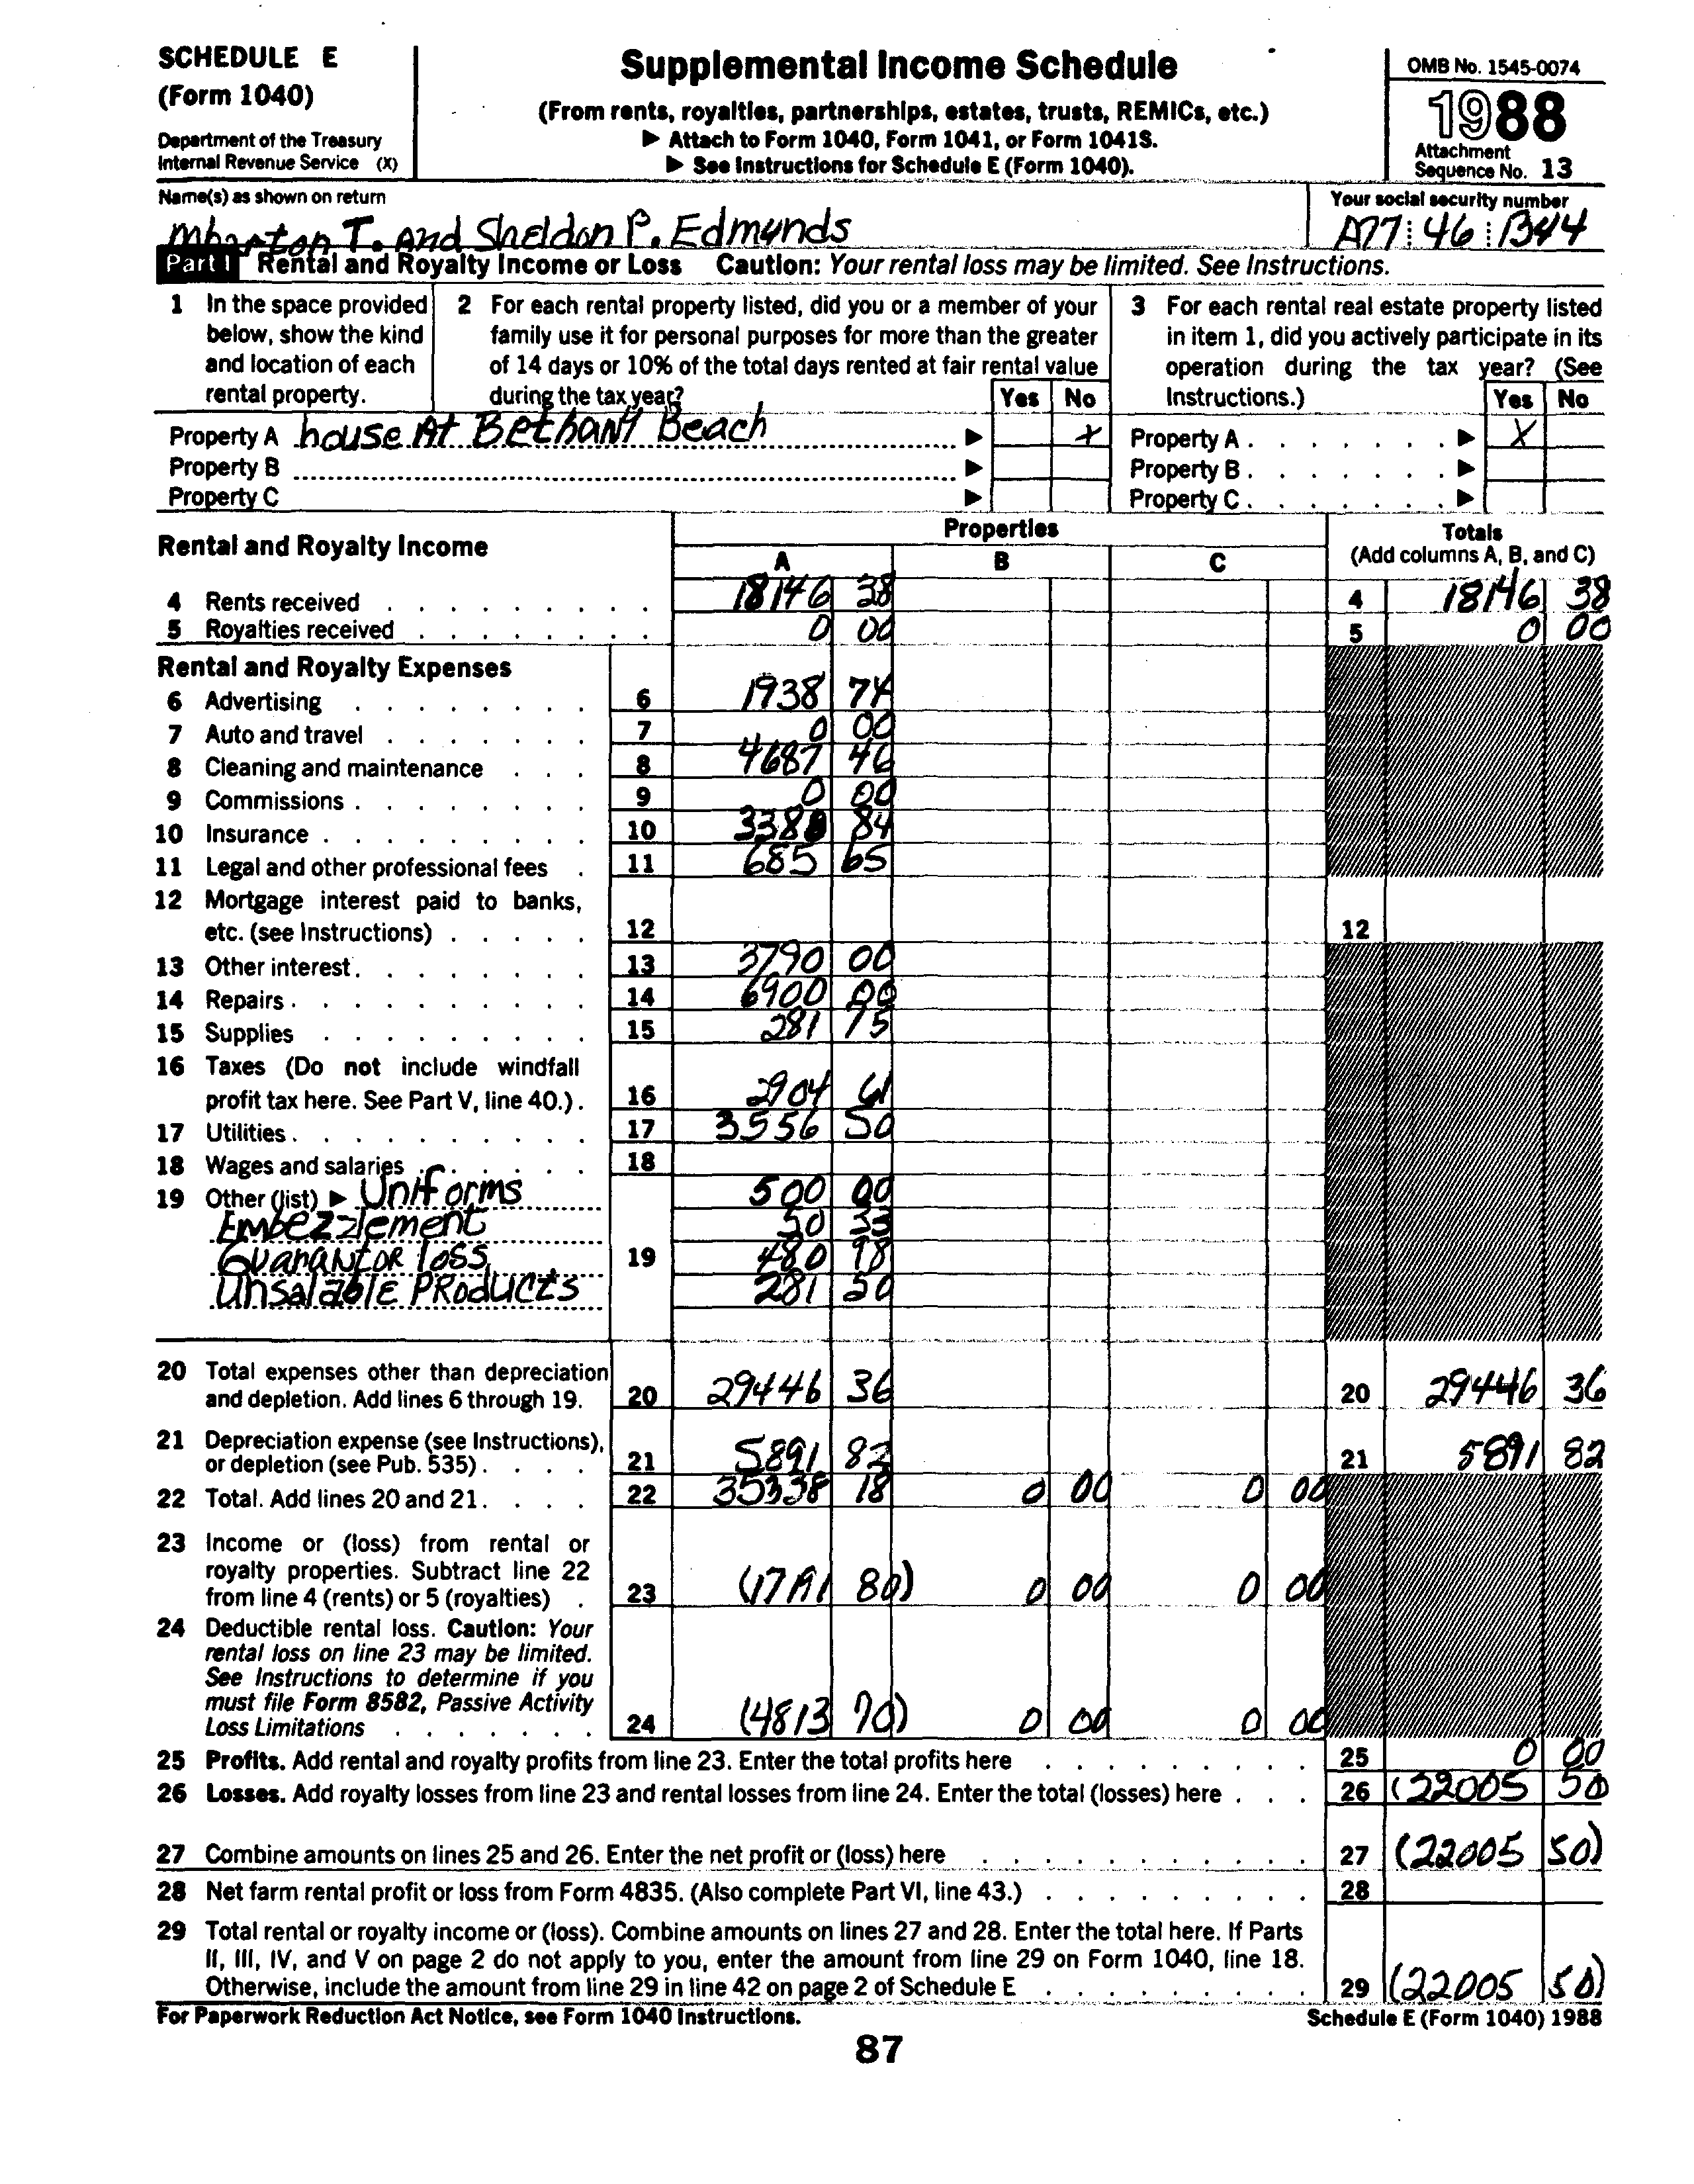 SCHEDULE E
(Form 1040)
Department of the Treasury
Internal Revenue Service (X)
Supplemental Income Schedule
(From rents, royalties, partnerships, estates, trusts, REMICs, etc.)
▶ Attach to Form 1040, Form 1041, or Form 1041S.
▶ See Instructions for Schedule E (Form 1040).
OMB No. 1545-0074
1988
Attachment
Sequence No. 13
Name(s) as shown on return
Your social security number
T. And Sheldon P. Edmunds
46
Part I Rental and Royalty Income or Loss Caution: Your rental loss may be limited. See Instructions.
1 In the space provided below, show the kind and location of each rental property.
2 For each rental property listed, did you or a member of your family use it for personal purposes for more than the greater of 14 days or 10% of the total days rented at fair rental value during the tax year?
Yes No
3 For each rental real estate property listed in item 1, did you actively participate in its operation during the tax year? (See Instructions.)
Yes No
Property A house At Bethany Beach ▶ X Property A . . . . . . . ▶ X
Property B ▶ Property B . . . . . . . ▶
Property C ▶ Property C . . . . . . . ▶
Rental and Royalty Income
Properties
A B C
Totals
(Add columns A, B, and C)
4 Rents received 18146 38 4 18146 38
5 Royalties received 0 00 5 0 00
Rental and Royalty Expenses
6 Advertising 6 1938 74
7 Auto and travel 7 0 00
8 Cleaning and maintenance 8 4687 46
9 Commissions 9 0 00
10 Insurance 10 84
11 Legal and other professional fees 11 685 65
12 Mortgage interest paid to banks,
etc. (see Instructions) 12 12
13 Other interest 13 3790 00
14 Repairs 14 6900 00
15 Supplies 15 281 75
16 Taxes (Do not include windfall
profit tax here. See Part V, line 40.) 16 2904 61
17 Utilities 17 3556 50
18 Wages and salaries 18
19 Other (list) ▶ Uniforms 500 00
Embezzlement 50 33
Guarantor loss 19 480 98
Unsalable Products 281 50
20 Total expenses other than depreciation
and depletion. Add lines 6 through 19. 20 29446 36 20 29446 36
21 Depreciation expense (see Instructions),
or depletion (see Pub. 535) 21 5891 82 21 5891 82
22 Total. Add lines 20 and 21 22 35338 18 0 00 0 00
23 Income or (loss) from rental or
royalty properties. Subtract line 22
from line 4 (rents) or 5 (royalties) 23 (17191 80) 0 00 0 00
24 Deductible rental loss. Caution: Your
rental loss on line 23 may be limited.
See Instructions to determine if you
must file Form 8582, Passive Activity
Loss Limitations 24 (4813 70) 0 00 0 00
25 Profits. Add rental and royalty profits from line 23. Enter the total profits here 25 0 00
26 Losses. Add royalty losses from line 23 and rental losses from line 24. Enter the total (losses) here 26 (22005 50
27 Combine amounts on lines 25 and 26. Enter the net profit or (loss) here 27 (22005 50)
28 Net farm rental profit or loss from Form 4835. (Also complete Part VI, line 43.) 28
29 Total rental or royalty income or (loss). Combine amounts on lines 27 and 28. Enter the total here. If Parts
II, III, IV, and V on page 2 do not apply to you, enter the amount from line 29 on Form 1040, line 18.
Otherwise, include the amount from line 29 in line 42 on page 2 of Schedule E 29 (22005 50)
For Paperwork Reduction Act Notice, see Form 1040 Instructions.
Schedule E (Form 1040) 1988
87